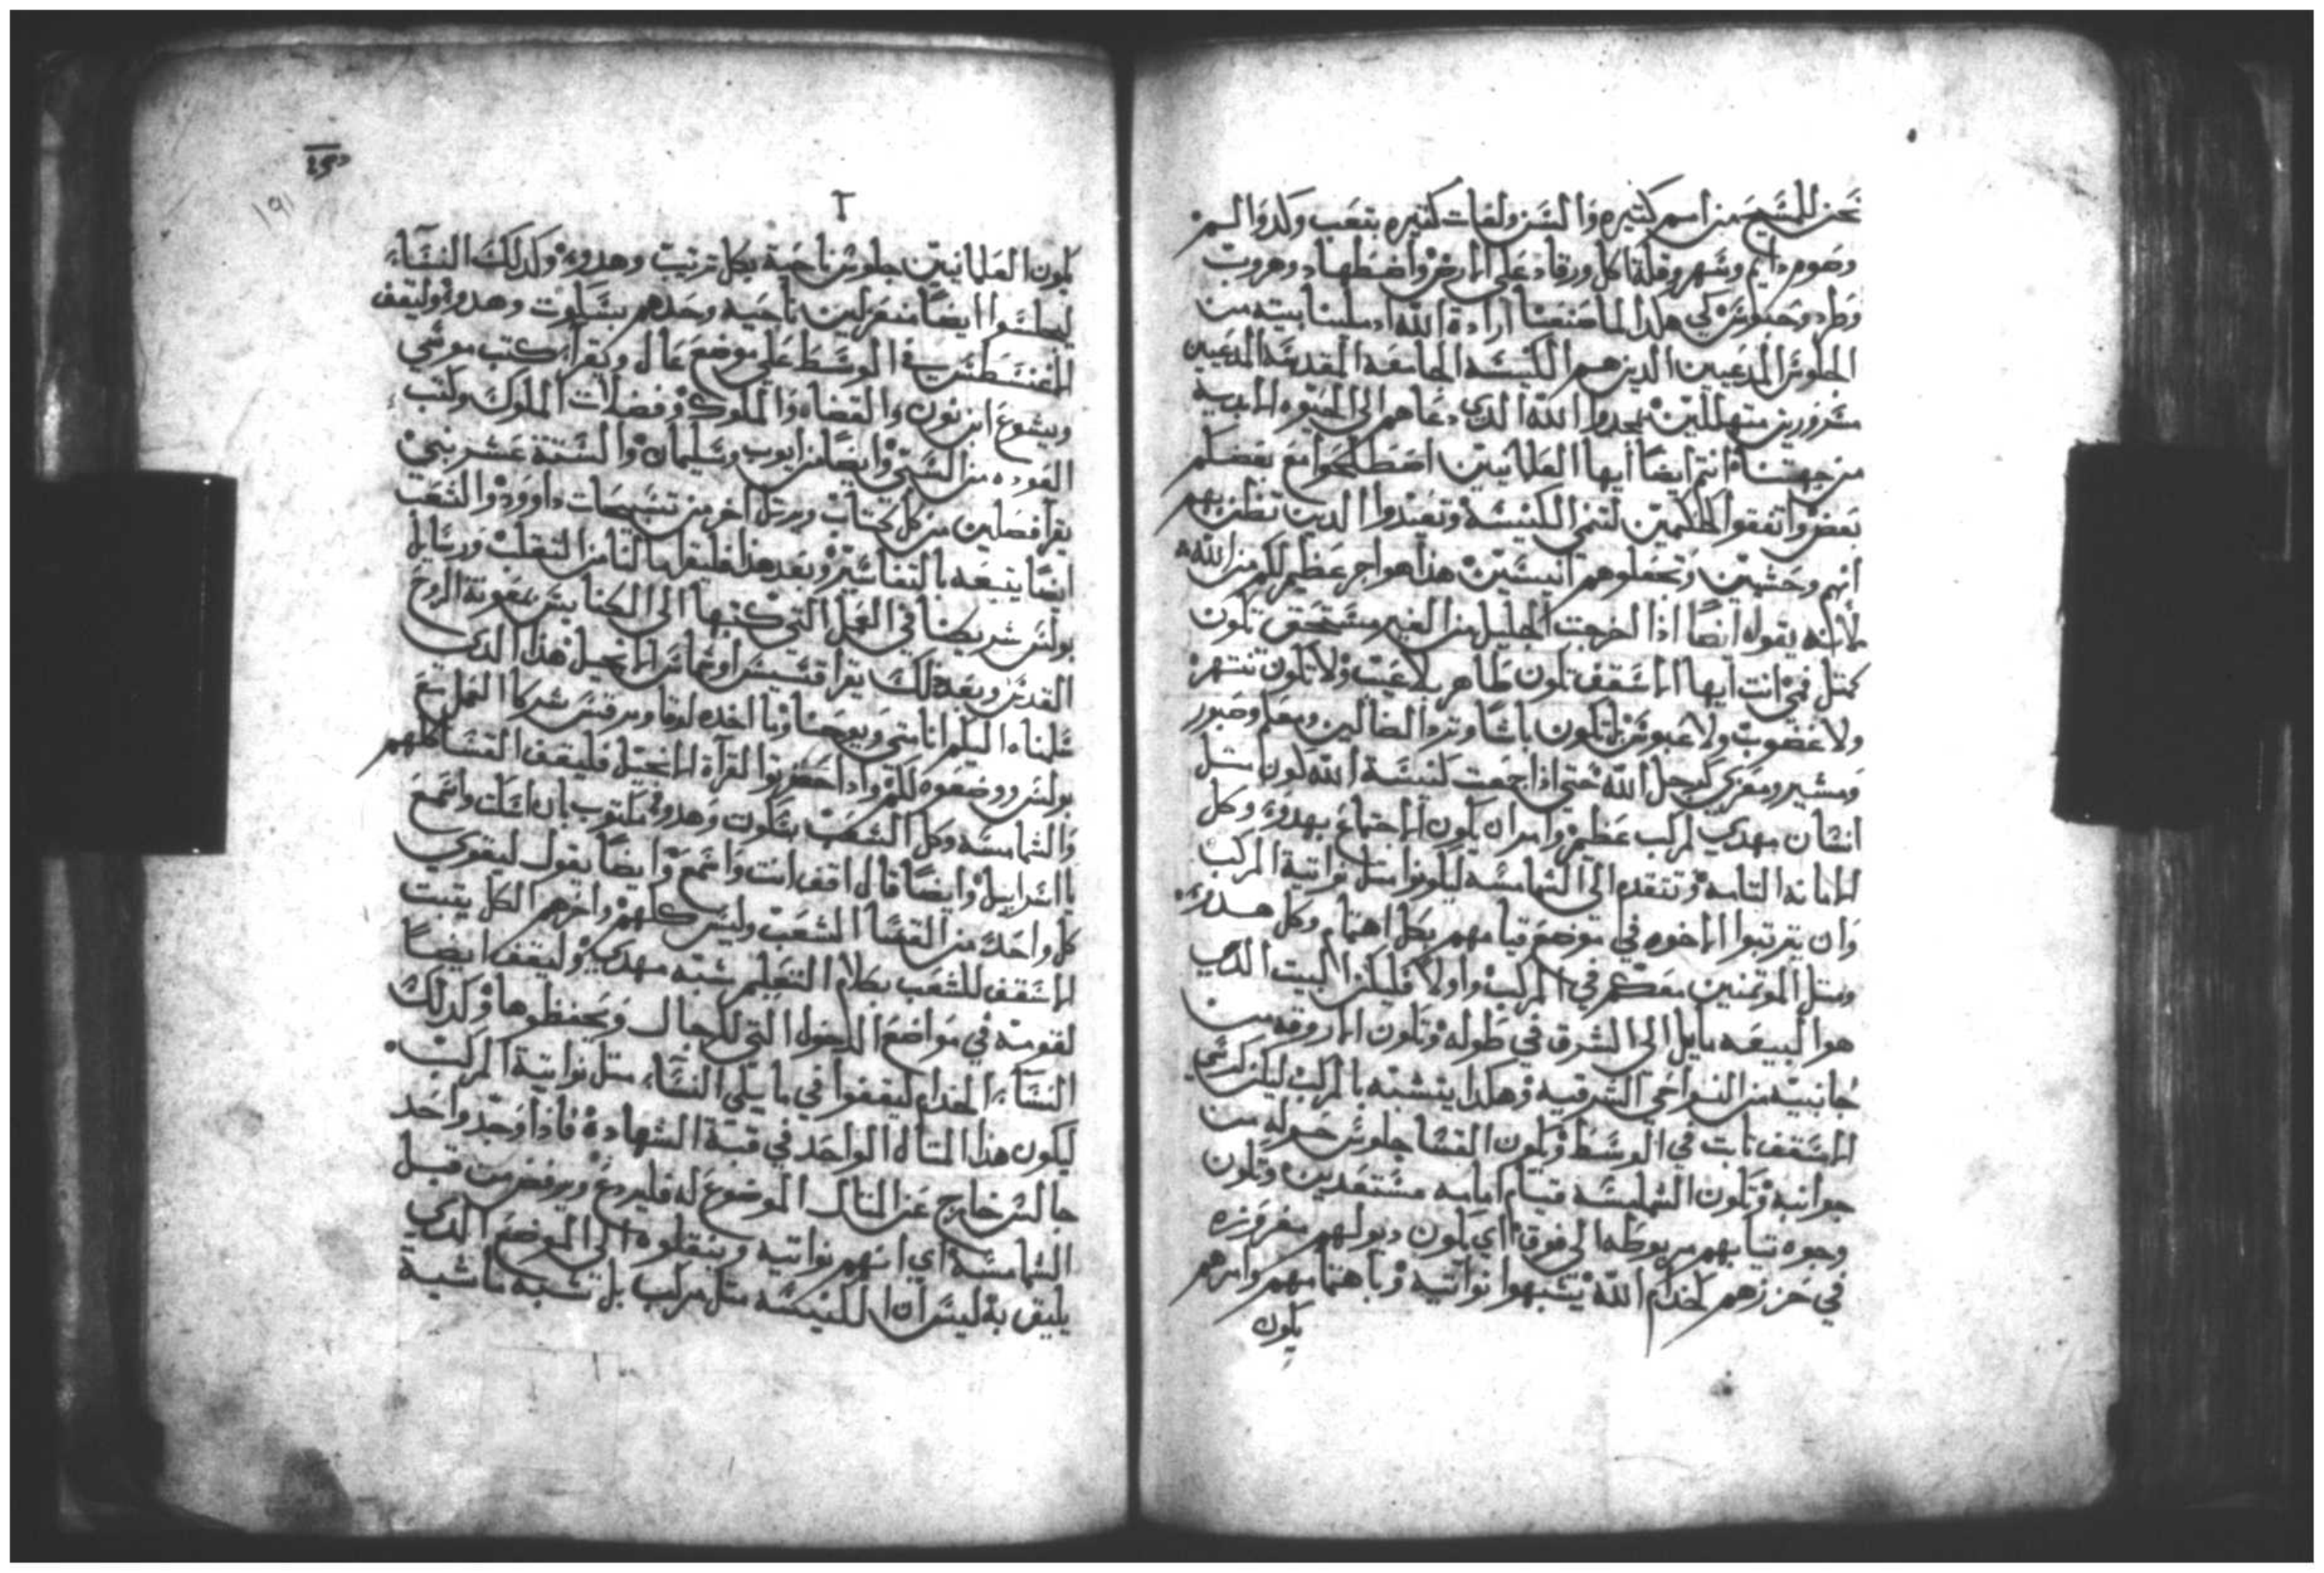 نحن للمسيح من اسم كتيره والسن ولغات كتيره بتعب وكد والم
وصوم دايم وسهر وقلة اكل ورقاد على الارض واضطهاد وهروب
وطرد وحبوس كي هكدا لما صنعنا ارادة الله ارسلنا بيته من
الجلوس المدعيين الدين هم الكنيسه الجامعه المقدسه المدعيين
مسرورين متهللين يمجدوا الله الدي دعاهم الى الحيوه الابديه
من جهتنا انتم ايضًا ايها العلمانيين اصطلحوا مع بعضكم
بعض واتفقوا كحكمين لتنمى الكنيسه وتعبدوا الدين تظن بهم
انهم وحشيين وتجعلوهم انيسين هذا هو اجر عظيم لكم من الله
لانه يقول ايضًا اذا اخرجت الجليل من الغير مستحق تكون
كمتل فمي انت ايها الاسقف تكون طاهر بلا عيب ولا تكون تنتهر
ولا غضوب ولا عبوس لتكون باشا وترد الضالين ومعلم وصبور
ومشير ومعزي كرجل الله حتى اذا جمعت كنيسة الله كون متل
انسان مهدي لمركب عظيم وامر ان يكون الاجتماع بهدوء وكل
الامانه التامه وتتقدم الى الشمامسه ليكونوا متل نواتية المركب
وان يترتبوا الاخوه في موضع قيامهم بكل اهتمام وكل هدوء
ومتل الموتمنين معكم في المركب واولا فليكن البيت الدي
هو البيعه مايل الى الشرق في طوله وتكون الاروقه من
جانبيه من النواحي الشرقيه وهكدا يتشبه بالمركب ليكن كرسي
الاسقف تابت في الوسط ويكون القسا جلوس حوله من
جوانبه وتكون الشمامسه قيام امامه مستعدين وتكون
وجوه تيابهم مربوطه الى فوق اي يكون ديولهم مغروزه
في حززهم كخدام الله يشبهوا نواتيه وباهتمامهم وامرهم
يكون
٢
يكون العلمانيين جلوس ناحية بكل ترتيب وهدوء وكدلك النساء
ليجلسوا ايضًا منعزلين ناحيه وحدهم بسكوت وهدوء وليقف
الاغنسطس في الوسط على موضع عال ويقرا كتب موسى
ويشوع ابن نون والقضاه والملوك وفضلات الملوك وكتب
العوده من السبي وايضًا من ايوب وسليمان والستة عشر نبي
يقرا فصلين من كل كتاب ويرتل اخر من تسبيحات داوود والشعب
ايضًا يتبعه بالتفاسير وبعد هذا فليقرا لنا من القتلب ورسايل
بولس شريكنا في العمل التي كتبها الى الكنايس بمعونة الروح
القدس وبعد دلك يقرا قسيس او شماس الانجيل هذا الدي
سلمناه اليكم انا متى ويوحنا وما اخده لوقا ومرقس شركا العمل مع
بولس ووضعوه لكم وادا حضرتوا القرآة الانجيل فليقف القسا كلهم
والشمامسه وكل الشعب بسكون وهدوء مكتوب بان اسكت واسمع
يا اسراييل وايضًا قال اقف انت واسمع وايضًا يقول ليقوي
كل واحد من القسا الشعب وليس كلهم واخرهم الكل يتبت
الاسقف للشعب بكلام التعليم شبه مهدي وليقف ايضًا
لقومة في مواضع الدخول التي للرجال ويحفظوها وكدلك
النساء الخدام ليقفوا في ما يلي النساء متل نواتية المركب
ليكون هذا المتال الواحد في قبة الشهاده فاذا وجد واحد
جالس خارج عن المتال الموضوع له فليردع ويرفض من قبل
الشمامسه اي انهم نواتيه وينقلوه الى الموضع الدي
يليق به ليس ان الكنيسه متل مركب بل تشبه ماشية
١٩١